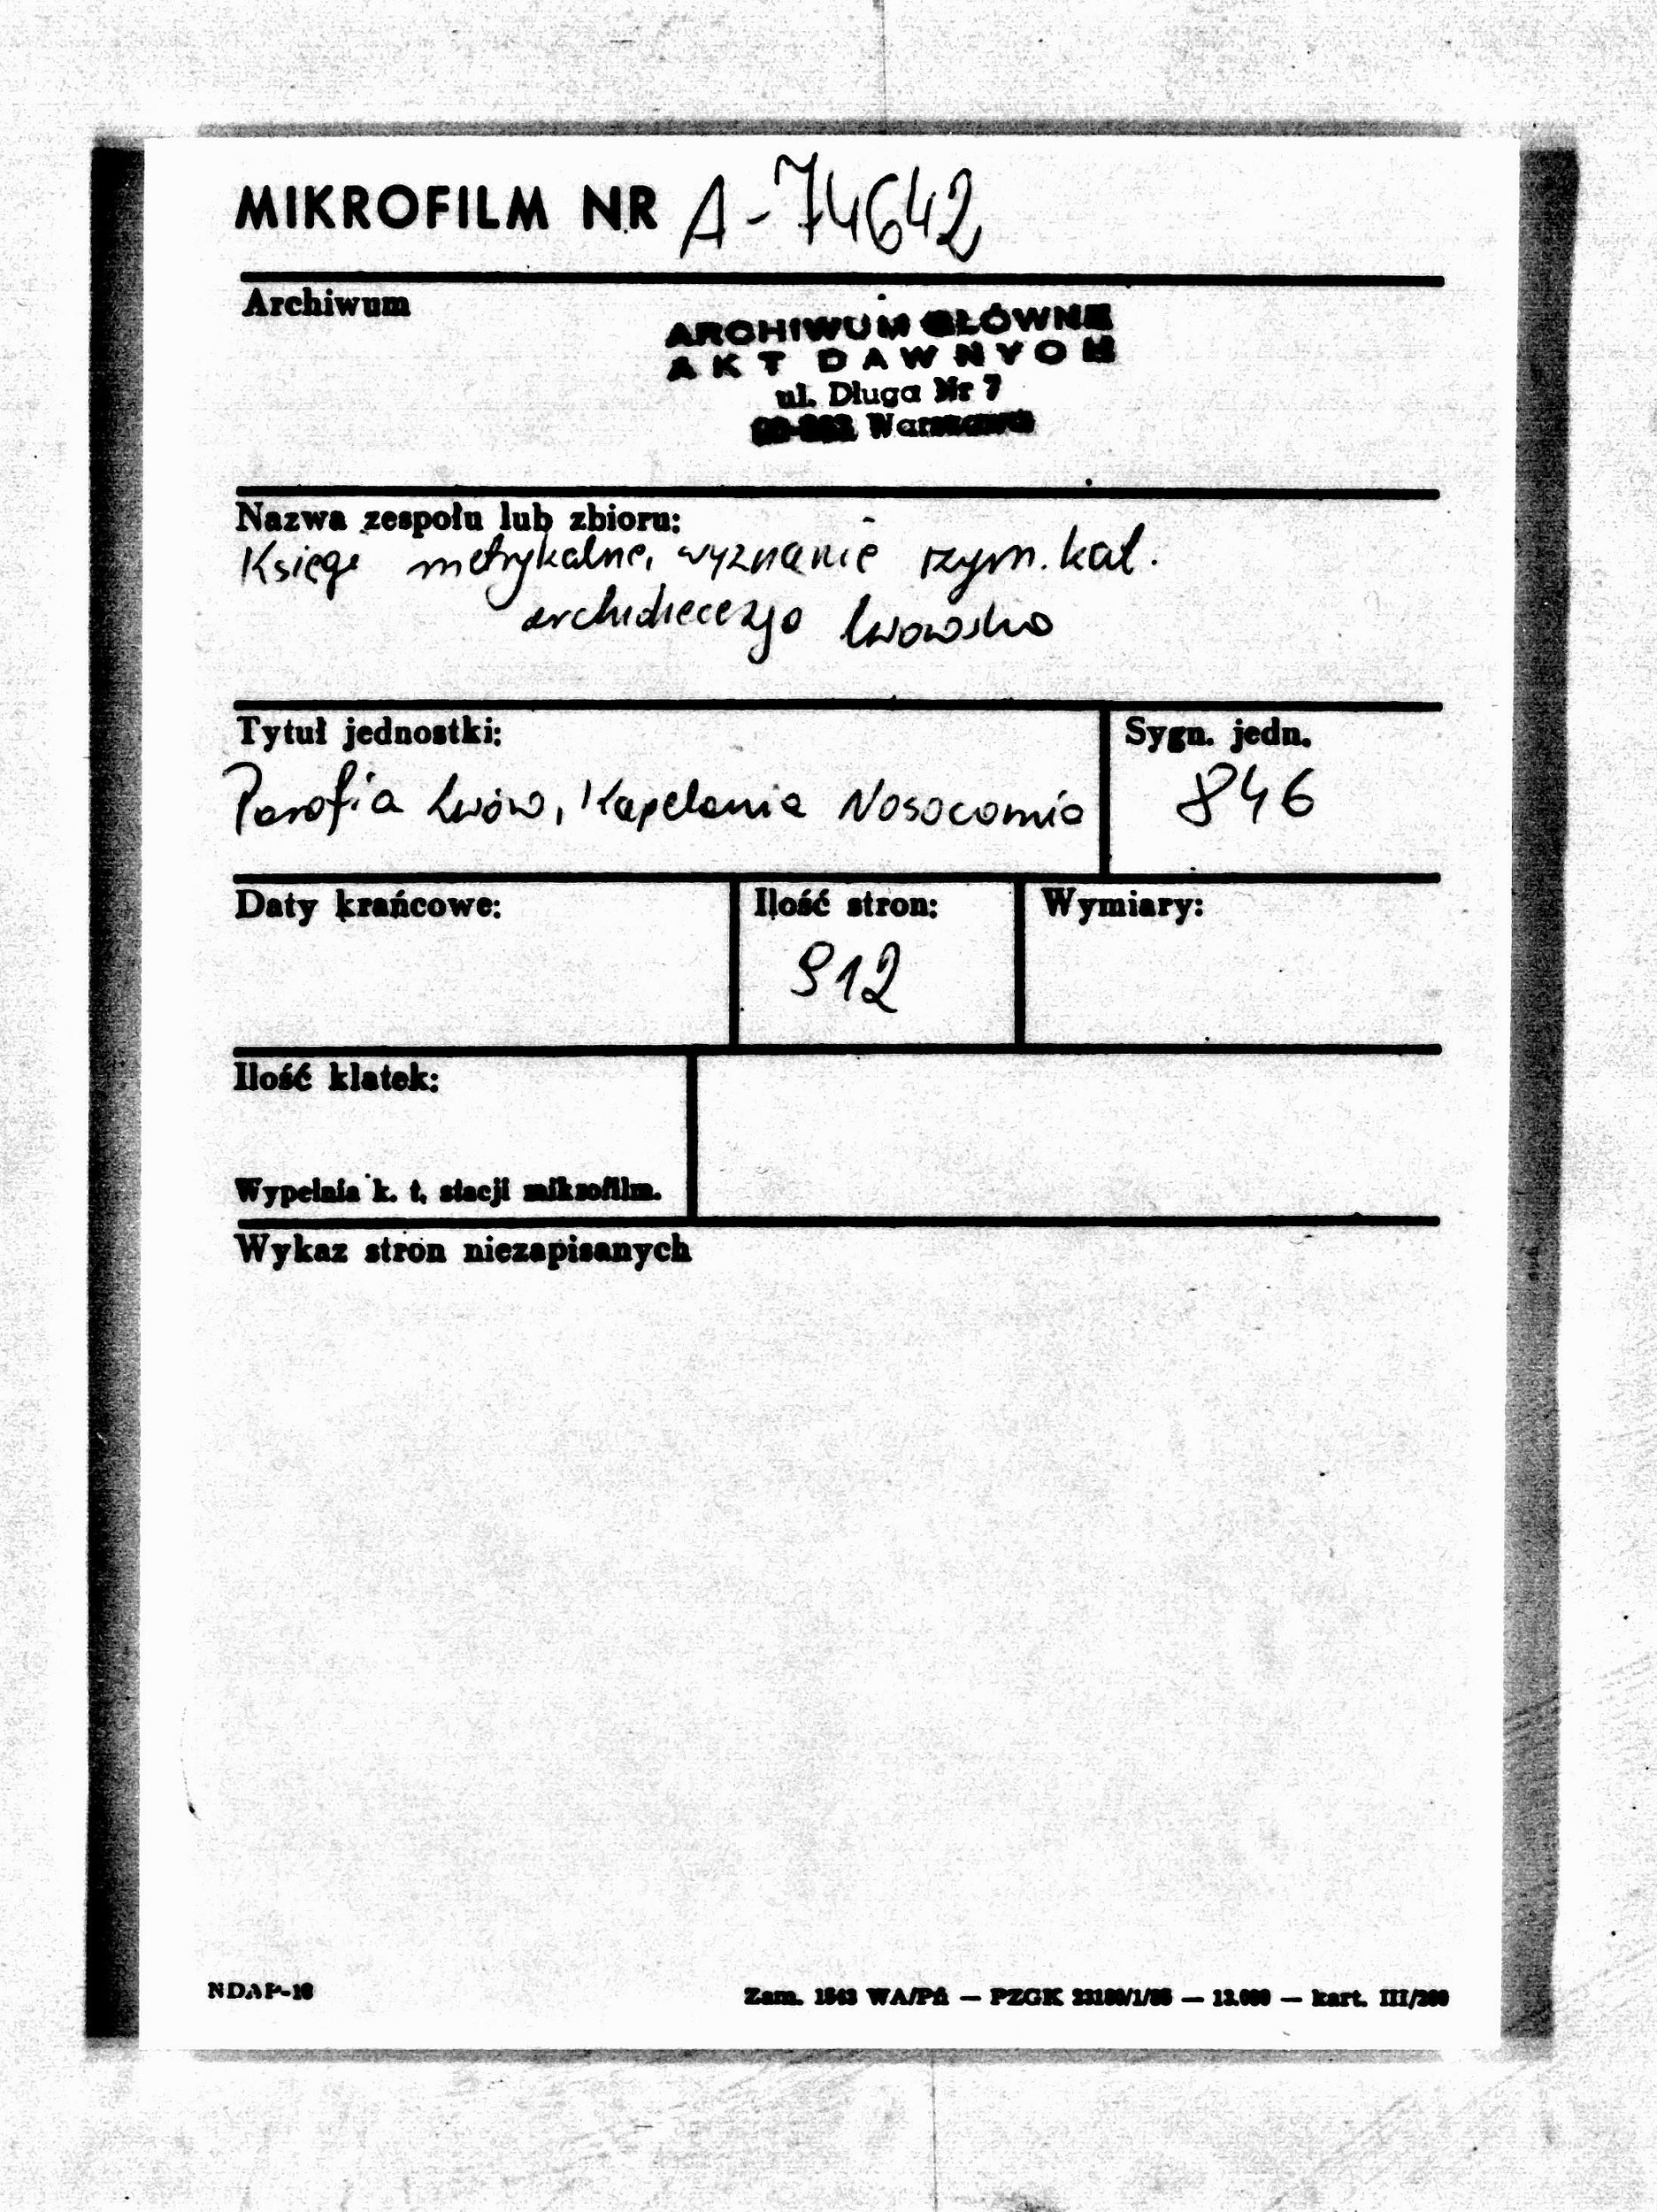 MIKROFILM NR A-74642
Archiwum
ARCHIWUM GŁÓWNE
AKT DAWNYCH
ul. Długa Nr 7
Warszawa
Nazwa zespołu lub zbioru:
Księgi metrykalne, wyznanie rzym. kat.
archidiecezja lwowska
Tytuł jednostki:
Sygn. jedn.
Parafia Lwów, Kapelania Nosocomia
846
Daty krańcowe:
Ilość stron:
Wymiary:
912
Ilość klatek:
Wypełnia k. t. stacji mikrofilm.
Wykaz stron niezapisanych
NDAP-16
Zam. 1543 WA/Pń — PZGK — — kart. III/200